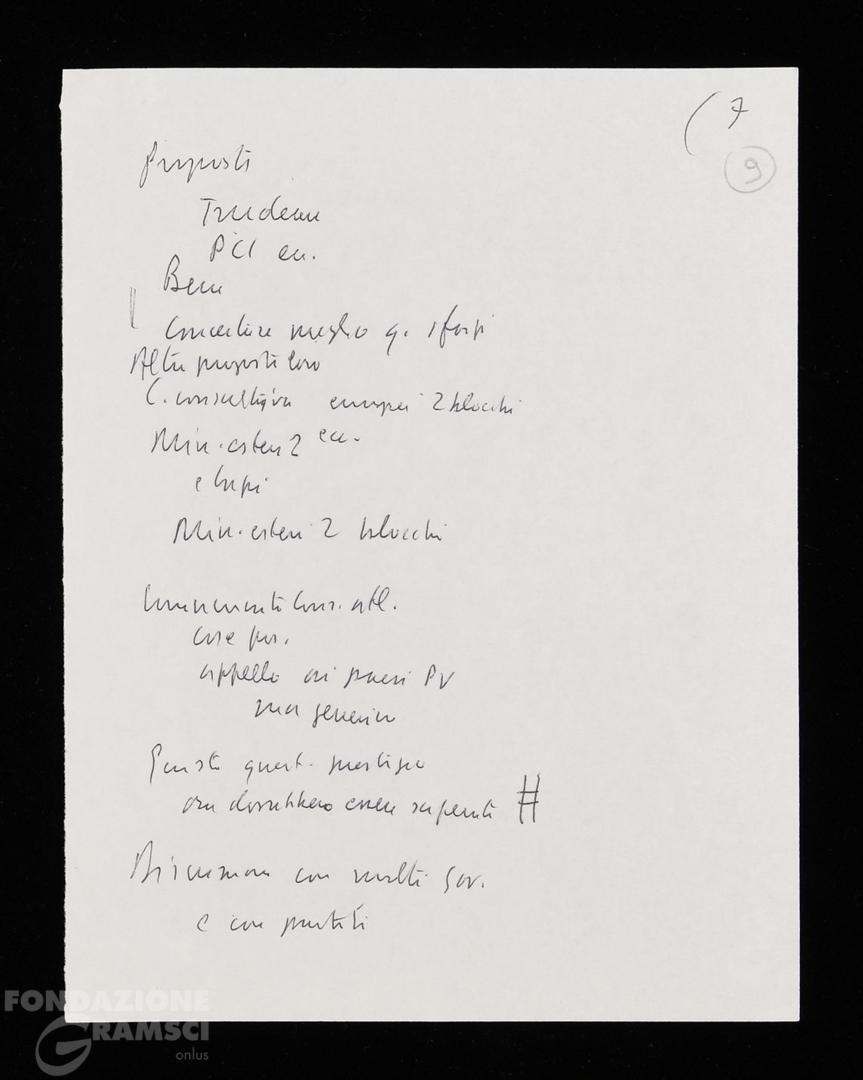 ( 7
9
Proposte
Trudeau
PCI ecc.
Bene
Concertare meglio q. sforzi
Altre proposte loro
C. consultiva europei 2 blocchi
Min. esteri 2 ecc.
e
Min. esteri 2 blocchi
Cons. atl.
cose pos.
appello ai paesi PV
ma generico
Giuste quest. prestigio
ora dovrebbero essere superate #
Discussione con molti gov.
e con partiti
FONDAZIONE
GRAMSCI
onlus